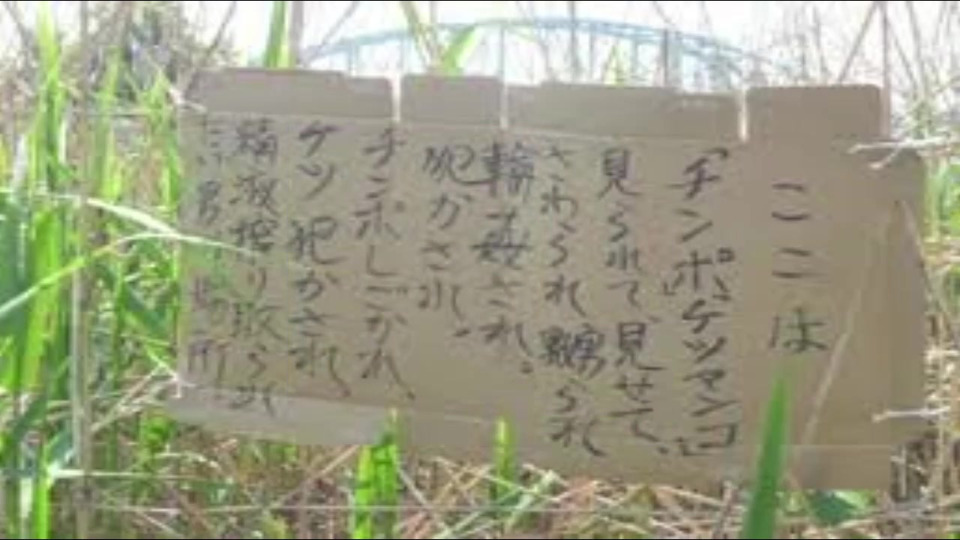 ここは
「チンポ」、「ケツマンコ」
見られて、見せて、
さわられ、嬲られ
輪姦され。
犯かされ。
チンポしごかれ、
ケツ犯かされ、
精液搾り取られ
男 場所